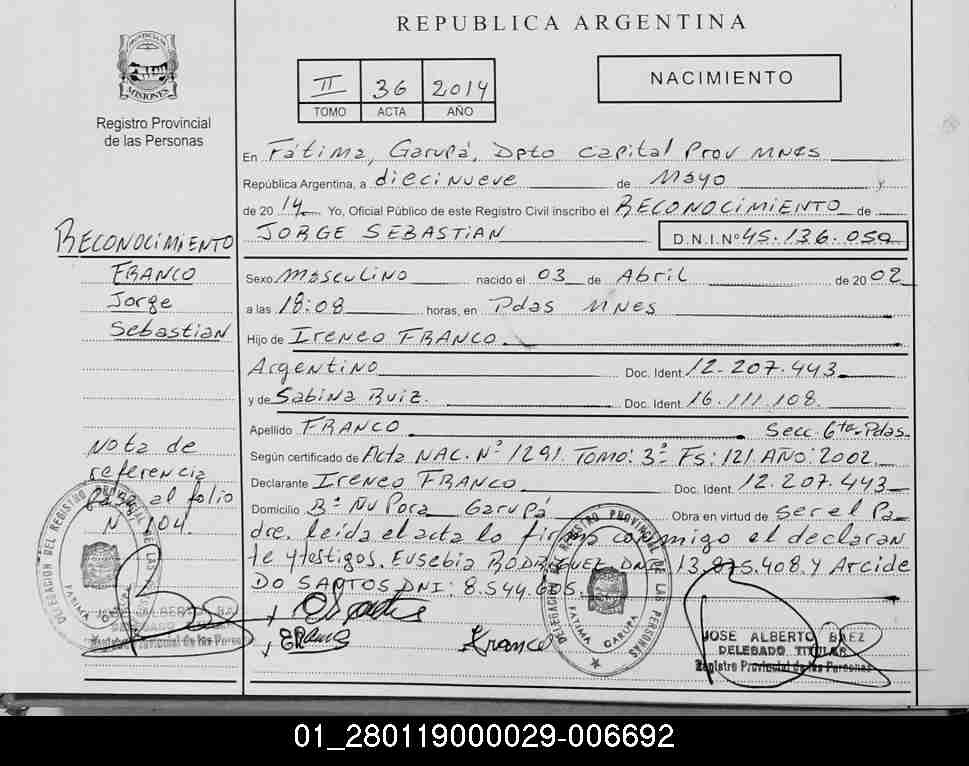 REPUBLICA ARGENTINA
PROVINCIA DE
MISIONES
Registro Provincial
de las Personas
II 36 2014
TOMO ACTA AÑO
NACIMIENTO
En Fátima, Garupá, Dpto Capital Prov MNES
República Argentina, a diecinueve de Mayo y
de 2014 Yo, Oficial Público de este Registro Civil inscribo el RECONOCIMIENTO de
JORGE SEBASTIAN D.N.I.Nº 45.136.050
RECONOCIMIENTO
FRANCO
Jorge
Sebastian
Sexo Masculino nacido el 03 de Abril de 2002
a las 18:08 horas, en Pdas MNES
Hijo de Ireneo FRANCO.
Argentino Doc. Ident. 12.207.443
y de Sabina Ruiz. Doc. Ident. 16.111.108.
Apellido FRANCO Secc 6ta Pdas.
Según certificado de Acta NAC. Nº 1291. Tomo: 3º Fs: 121 AÑO: 2002.
Declarante Ireneo FRANCO Doc. Ident. 12.207.443
Domicilio Bº Ñu Pora Garupá Obra en virtud de ser el Pa-
dre. leída el acta lo firma conmigo el declaran
te y testigos. Eusebia RODRIGUEZ DNI: 13.875.408. y Arcide
DO SANTOS DNI: 8.544.605.
Nota de
referencia
Pasa al folio
Nº 104.
DELEGACION DEL REGISTRO PROVINCIAL DE LAS PERSONAS
FATIMA GARUPA
JOSE ALBERTO BAEZ
DELEGADO TITULAR
Registro Provincial de las Personas
Franco
DELEGACION DEL REGISTRO PROVINCIAL DE LAS PERSONAS
FATIMA GARUPA
JOSE ALBERTO BAEZ
DELEGADO TITULAR
Registro Provincial de las Personas
01_280119000029-006692